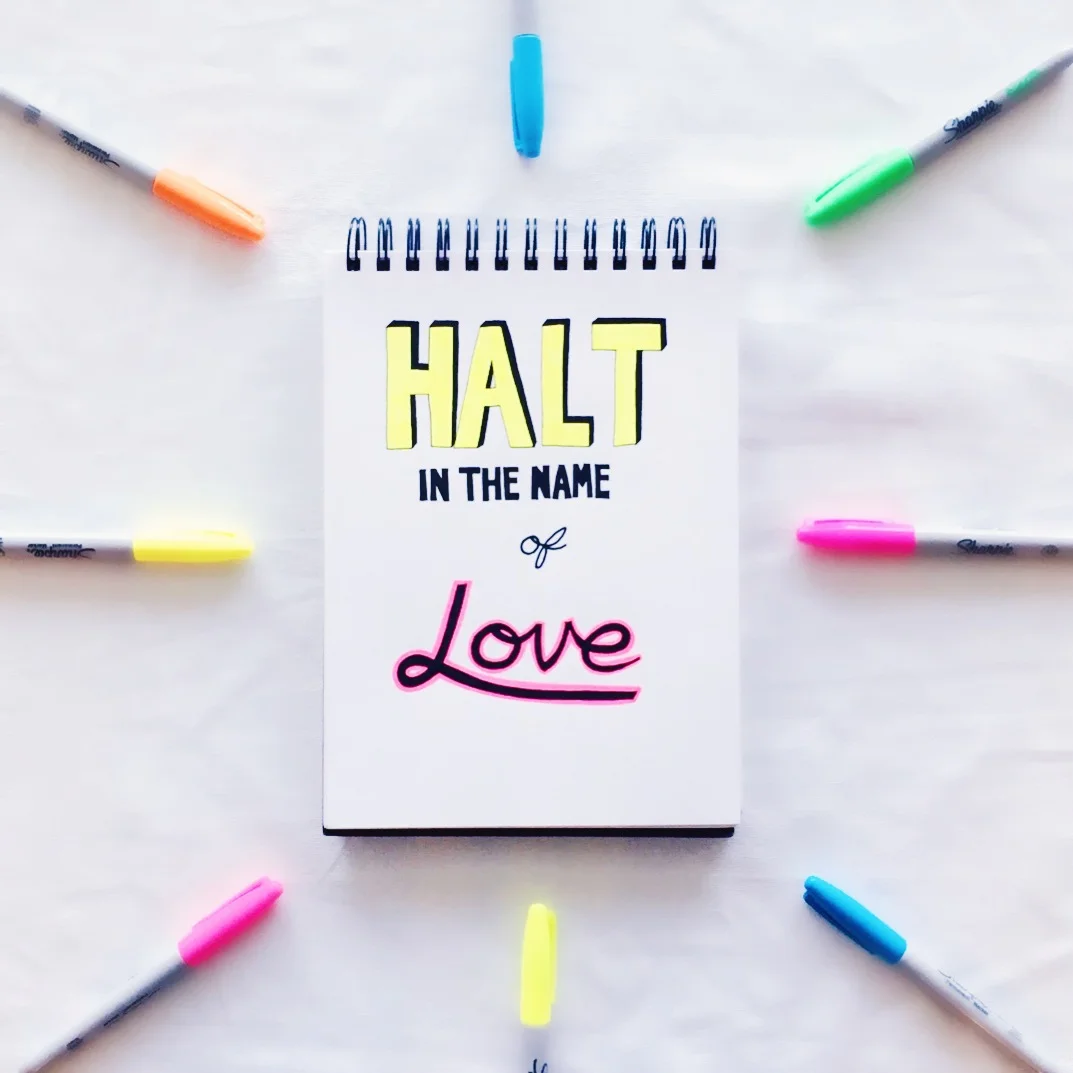 HALT
IN THE NAME
of
Love
Sharpie
Sharpie